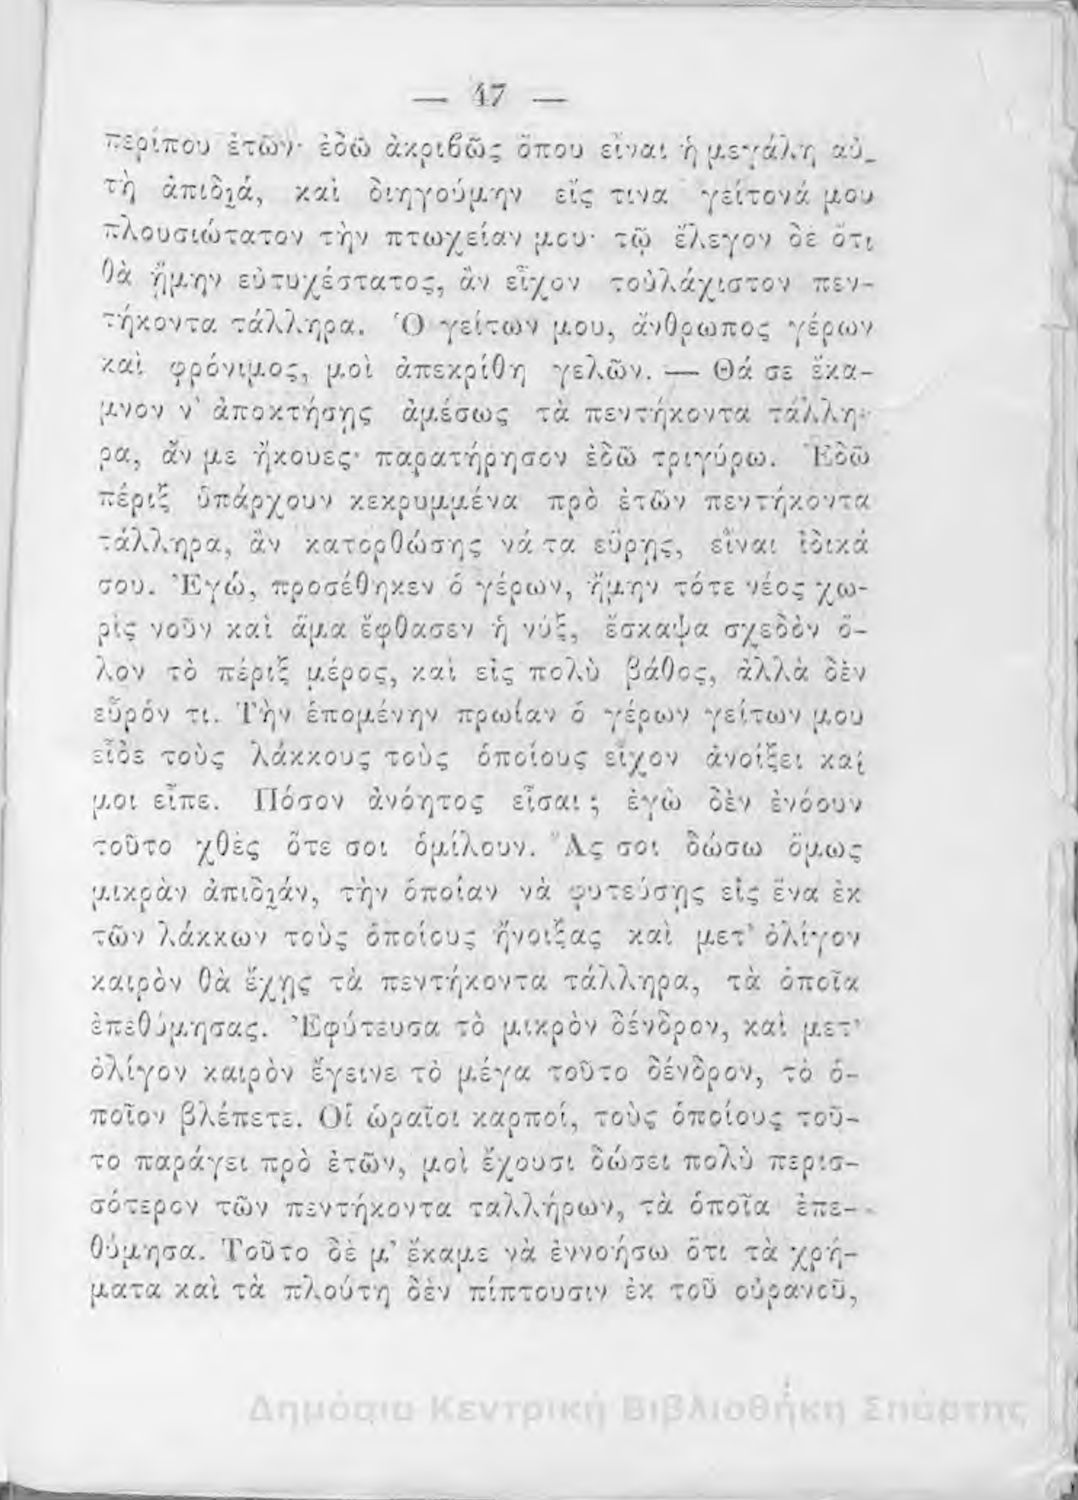 — 47 —
περίπου ἐτῶν· ἐδῶ ἀκριβῶς ὅπου εἶναι ἡ μεγάλη αὐ_
τὴ ἀπιδιά, καὶ διηγούμην εἴς τινα γείτονά μου
πλουσιώτατον τὴν πτωχείαν μου· τῷ ἔλεγον δὲ ὅτι
θὰ ἤμην εὐτυχέστατος, ἂν εἶχον τοὐλάχιστον πεν-
τήκοντα τάλληρα. Ὁ γείτων μου, ἄνθρωπος γέρων
καὶ φρόνιμος, μοὶ ἀπεκρίθη γελῶν. — Θά σε ἔκα-
μνον ν' ἀποκτήσῃς ἀμέσως τὰ πεντήκοντα τάλλη-
ρα, ἄν με ἤκουες· παρατήρησον ἐδῶ τριγύρω. Ἐδῶ
πέριξ ὑπάρχουν κεκρυμμένα πρὸ ἐτῶν πεντήκοντα
τάλληρα, ἂν κατορθώσῃς νά τα εὕρῃς, εἶναι ἰδικά
σου. Ἐγώ, προσέθηκεν ὁ γέρων, ἤμην τότε νέος χω-
ρὶς νοῦν καὶ ἅμα ἔφθασεν ἡ νύξ, ἔσκαψα σχεδὸν ὅ-
λον τὸ πέριξ μέρος, καὶ εἰς πολὺ βάθος, ἀλλὰ δὲν
εὗρόν τι. Τὴν ἑπομένην πρωίαν ὁ γέρων γείτων μου
εἶδε τοὺς λάκκους τοὺς ὁποίους εἶχον ἀνοίξει καί
μοι εἶπε. Πόσον ἀνόητος εἶσαι; ἐγὼ δὲν ἐνόουν
τοῦτο χθὲς ὅτε σοι ὁμίλουν. Ἂς σοι δώσω ὅμως
μικρὰν ἀπιδιάν, τὴν ὁποίαν νὰ φυτεύσῃς εἰς ἕνα ἐκ
τῶν λάκκων τοὺς ὁποίους ἤνοιξας καὶ μετ' ὀλίγον
καιρὸν θὰ ἔχῃς τὰ πεντήκοντα τάλληρα, τὰ ὁποῖα
ἐπεθύμησας. Ἐφύτευσα τὸ μικρὸν δένδρον, καὶ μετ'
ὀλίγον καιρὸν ἔγεινε τὸ μέγα τοῦτο δένδρον, τὸ ὁ-
ποῖον βλέπετε. Οἱ ὡραῖοι καρποί, τοὺς ὁποίους τοῦ-
το παράγει πρὸ ἐτῶν, μοὶ ἔχουσι δώσει πολὺ περισ-
σότερον τῶν πεντήκοντα ταλλήρων, τὰ ὁποῖα ἐπε-
θύμησα. Τοῦτο δὲ μ' ἔκαμε νὰ ἐννοήσω ὅτι τὰ χρή-
ματα καὶ τὰ πλούτη δὲν πίπτουσιν ἐκ τοῦ οὐρανοῦ,
Δημόσια Κεντρική Βιβλιοθήκη Σπάρτης